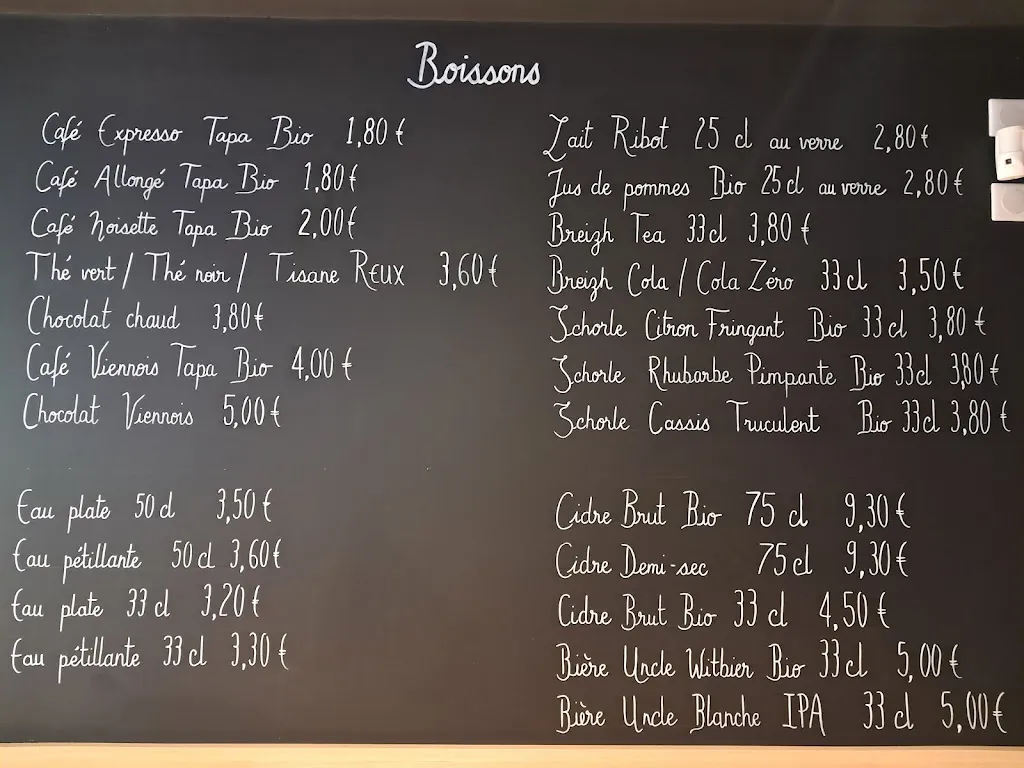 Boissons
Café Expresso Tapa Bio 1,80 €
Café Allongé Tapa Bio 1,80 €
Café Noisette Tapa Bio 2,00 €
Thé vert / Thé noir / Tisane Reux 3,60 €
Chocolat chaud 3,80 €
Café Viennois Tapa Bio 4,00 €
Chocolat Viennois 5,00 €
Eau plate 50 cl 3,50 €
Eau pétillante 50 cl 3,60 €
Eau plate 33 cl 3,20 €
Eau pétillante 33 cl 3,30 €
Lait Ribot 25 cl au verre 2,80 €
Jus de pommes Bio 25 cl au verre 2,80 €
Breizh Tea 33 cl 3,80 €
Breizh Cola / Cola Zéro 33 cl 3,50 €
Schorle Citron Fringant Bio 33 cl 3,80 €
Schorle Rhubarbe Pimpante Bio 33 cl 3,80 €
Schorle Cassis Truculent Bio 33 cl 3,80 €
Cidre Brut Bio 75 cl 9,30 €
Cidre Demi-sec 75 cl 9,30 €
Cidre Brut Bio 33 cl 4,50 €
Bière Uncle Witbier Bio 33 cl 5,00 €
Bière Uncle Blanche IPA 33 cl 5,00 €